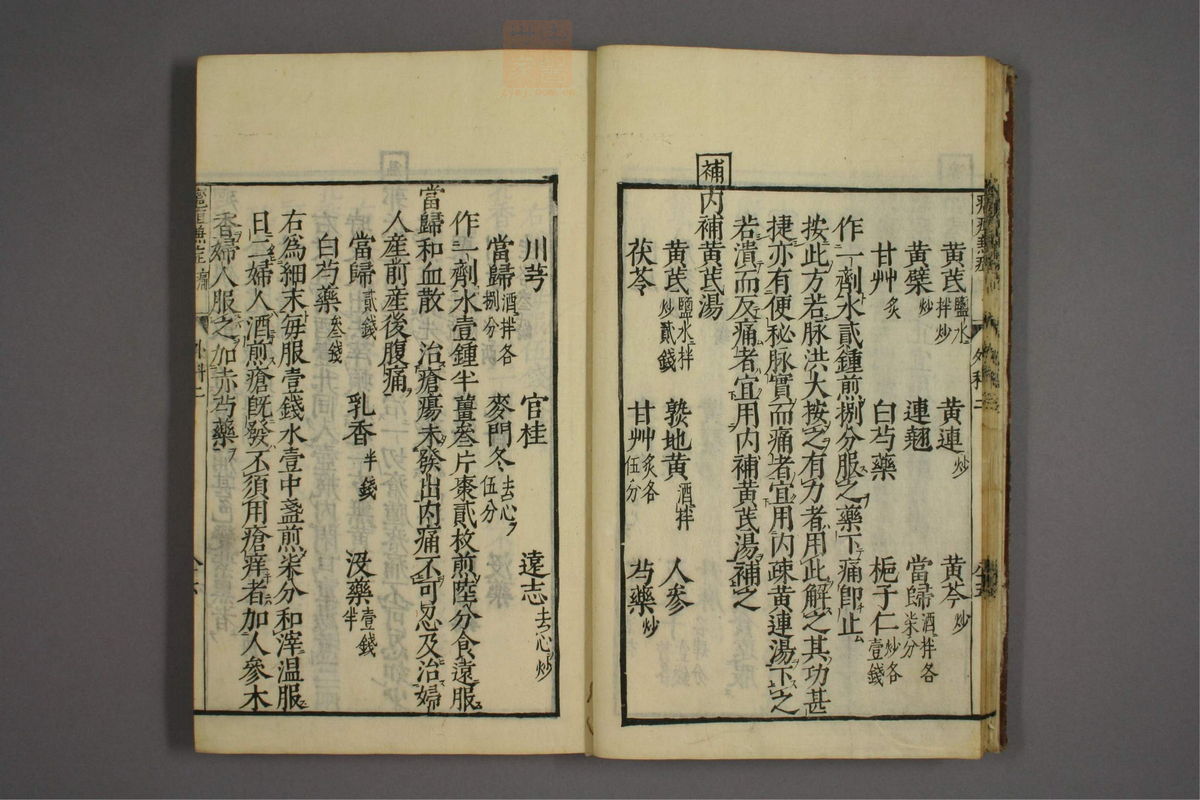 黄芪鹽水拌炒 黄連炒 黄芩炒
黄蘗炒 連翹 當歸酒拌各柒分
甘艸炙 白芍藥 梔子仁炒各壹錢
作一劑水貳鍾煎捌分服之藥下痛卽止
按此方若脉洪大按之有力者用此解之其功甚
捷亦有便秘脉實而痛者宜用内疎黄連湯下之
若潰而及痛者宜用内補黄芪湯補之
補 内補黄芪湯
黄芪鹽水拌炒貳錢 熟地黄酒拌 人參
茯苓 甘艸炙各伍分 芍藥炒
川芎 官桂 遠志去心炒
當歸酒拌各捌分 麥門冬去心伍分
作一劑水壹鍾半薑叄片棗貳枚煎陸分食遠服
當歸和血散 治瘡瘍未發出内痛不可忍及治婦
人産前産後腹痛
當歸貳錢 乳香半錢 没藥壹錢半
白芍藥叄錢
右爲細末每服壹錢水壹中盞煎柒分和滓温服
日二婦人酒煎瘡旣發不須用瘡痒者加人參木
香婦人服之加赤芍藥
外科二